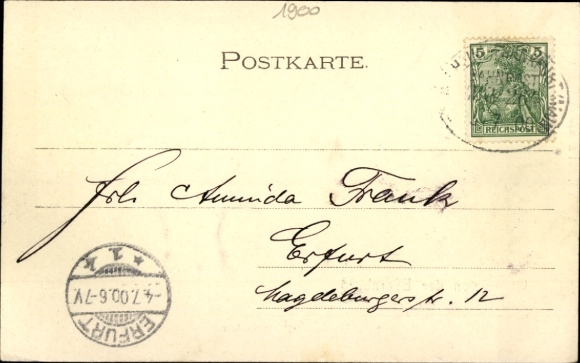 1900
POSTKARTE.
5 5
REICHSPOST
Frl. Armida Frank
Erfurt
Magdeburgerstr. 12
* 1 k
-4.7.00.6-7V.
ERFURT